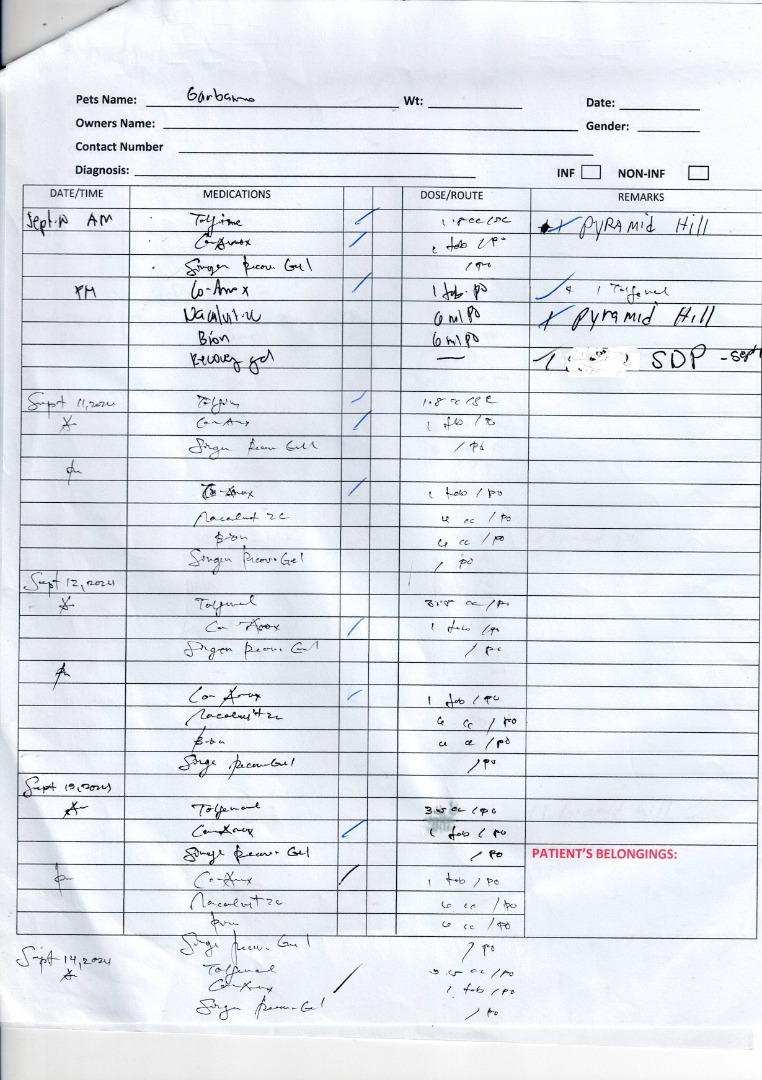 Pets Name: Garbanzo Wt: Date:
Owners Name: Gender:
Contact Number
Diagnosis: INF NON-INF
DATE/TIME MEDICATIONS DOSE/ROUTE REMARKS
Sept. 10 AM Tolfine 1.8 cc / SC Pyramid Hill
Co-Amox 1 tab / po
Singen Recov. Gel / po
PM Co-Amox 1 tab. po 1 Tolfenol
Nacalvit-C 6 ml PO Pyramid Hill
Bion 6 ml PO
Recovery gel — SDP - Sept
Sept 11, 2024 Tolfine 1.8 cc / SC
Co-Amox 1 tab /
Singen Recov Gel / po
pm
Co-Amox 1 tab / po
Nacalvit 2c cc / po
Bion cc / po
Singen Recov. Gel / po
Sept 12, 2024
Tolfenol cc / po
Co-Amox 1 tab / po
Singen Recov. Gel / po
pm
Co-Amox 1 tab / po
Nacalvit 2c cc / po
Bion cc / po
Singen Recov Gel / po
Sept 13, 2024
Tolfenol 3.5 cc / po
Co-Amox 1 tab / po
Singen Recov. Gel / po PATIENT'S BELONGINGS:
pm Co-Amox 1 tab / po
Nacalvit 2c cc / po
Bion cc / po
Singen Recov. Gel / po
Sept 14, 2024
Tolfenol 3.5 cc / po
Co-Amox 1 tab / po
Singen Recov. Gel / po